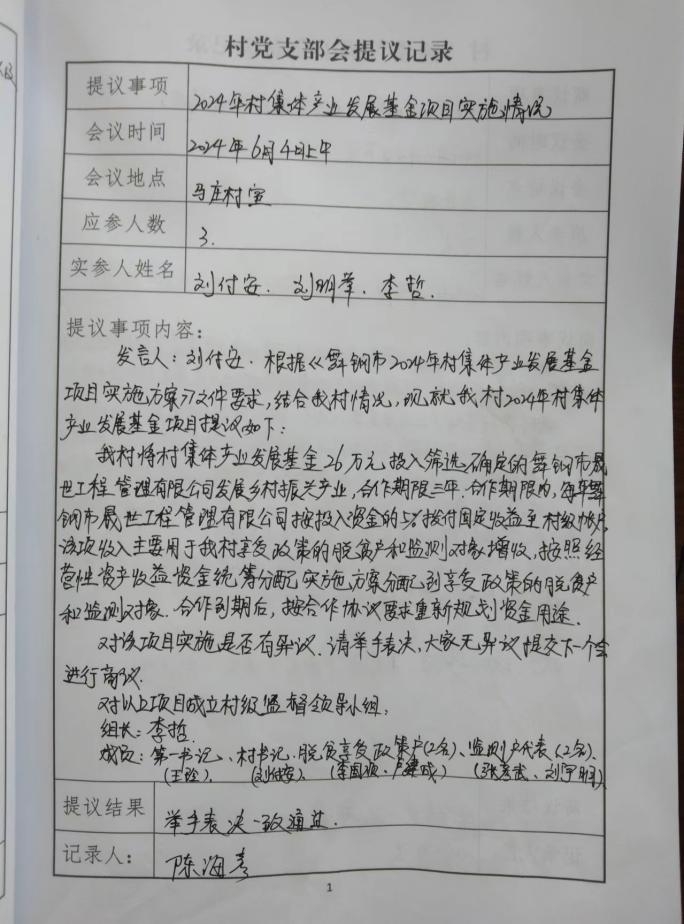 村党支部会提议记录
提议事项 2024年村集体产业发展基金项目实施情况
会议时间 2024年6月4日上午
会议地点 马庄村室
应参人数 3.
实参人姓名 刘付安. 刘明举. 李哲.
提议事项内容:
发言人:刘付安. 根据《舞钢市2024年村集体产业发展基金
项目实施方案》文件要求,结合我村情况,现就我村2024年村集体
产业发展基金项目提议如下:
我村将村集体产业发展基金26万元,投入筛选确定的舞钢市晟
世工程管理有限公司发展乡村振兴产业,合作期限三年.合作期限内,每年舞
钢市晟世工程管理有限公司按投入资金的5%拨付固定收益至村级帐户
该项收入主要用于我村享受政策的脱贫户和监测对象增收,按照经
营性资产收益资金统筹分配实施方案分配到享受政策的脱贫户
和监测对象. 合作到期后,按合作协议要求重新规划资金用途.
对该项目实施是否有异议.请举手表决,大家无异议提交下一个会
进行商议.
对以上项目成立村级监督领导小组,
组长:李哲.
成员:第一书记、村书记.脱贫享受政策户(2名)、监测户代表(2名).
(刘付安). (张 武、刘宇明)
提议结果 举手表决一致通过.
记录人: 陈海
1